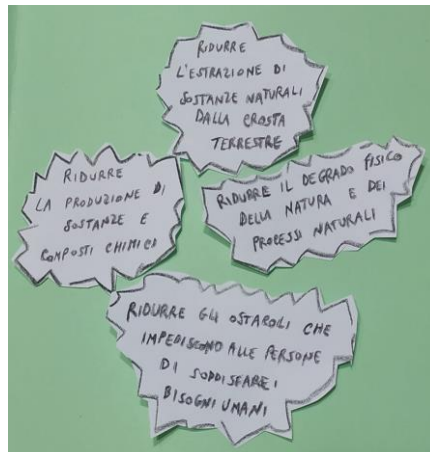 RIDURRE
L'ESTRAZIONE DI
SOSTANZE NATURALI
DALLA CROSTA
TERRESTRE
RIDURRE
LA PRODUZIONE DI
SOSTANZE E
COMPOSTI CHIMICI
RIDURRE IL DEGRADO FISICO
DELLA NATURA E DEI
PROCESSI NATURALI
RIDURRE GLI OSTACOLI CHE
IMPEDISCONO ALLE PERSONE
DI SODDISFARE I
BISOGNI UMANI